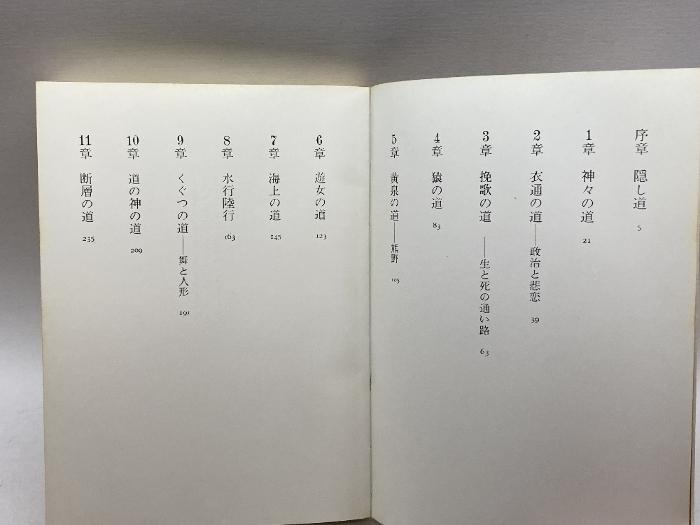 序章 隠し道 5
1章 神々の道 21
2章 衣通の道──政治と悲恋 39
3章 挽歌の道──生と死の通い路 63
4章 猿の道 83
5章 黄泉の道──熊野 105
6章 遊女の道 123
7章 海上の道 145
8章 水行陸行 163
9章 くぐつの道──舞と人形 191
10章 道の神の道 209
11章 断層の道 235